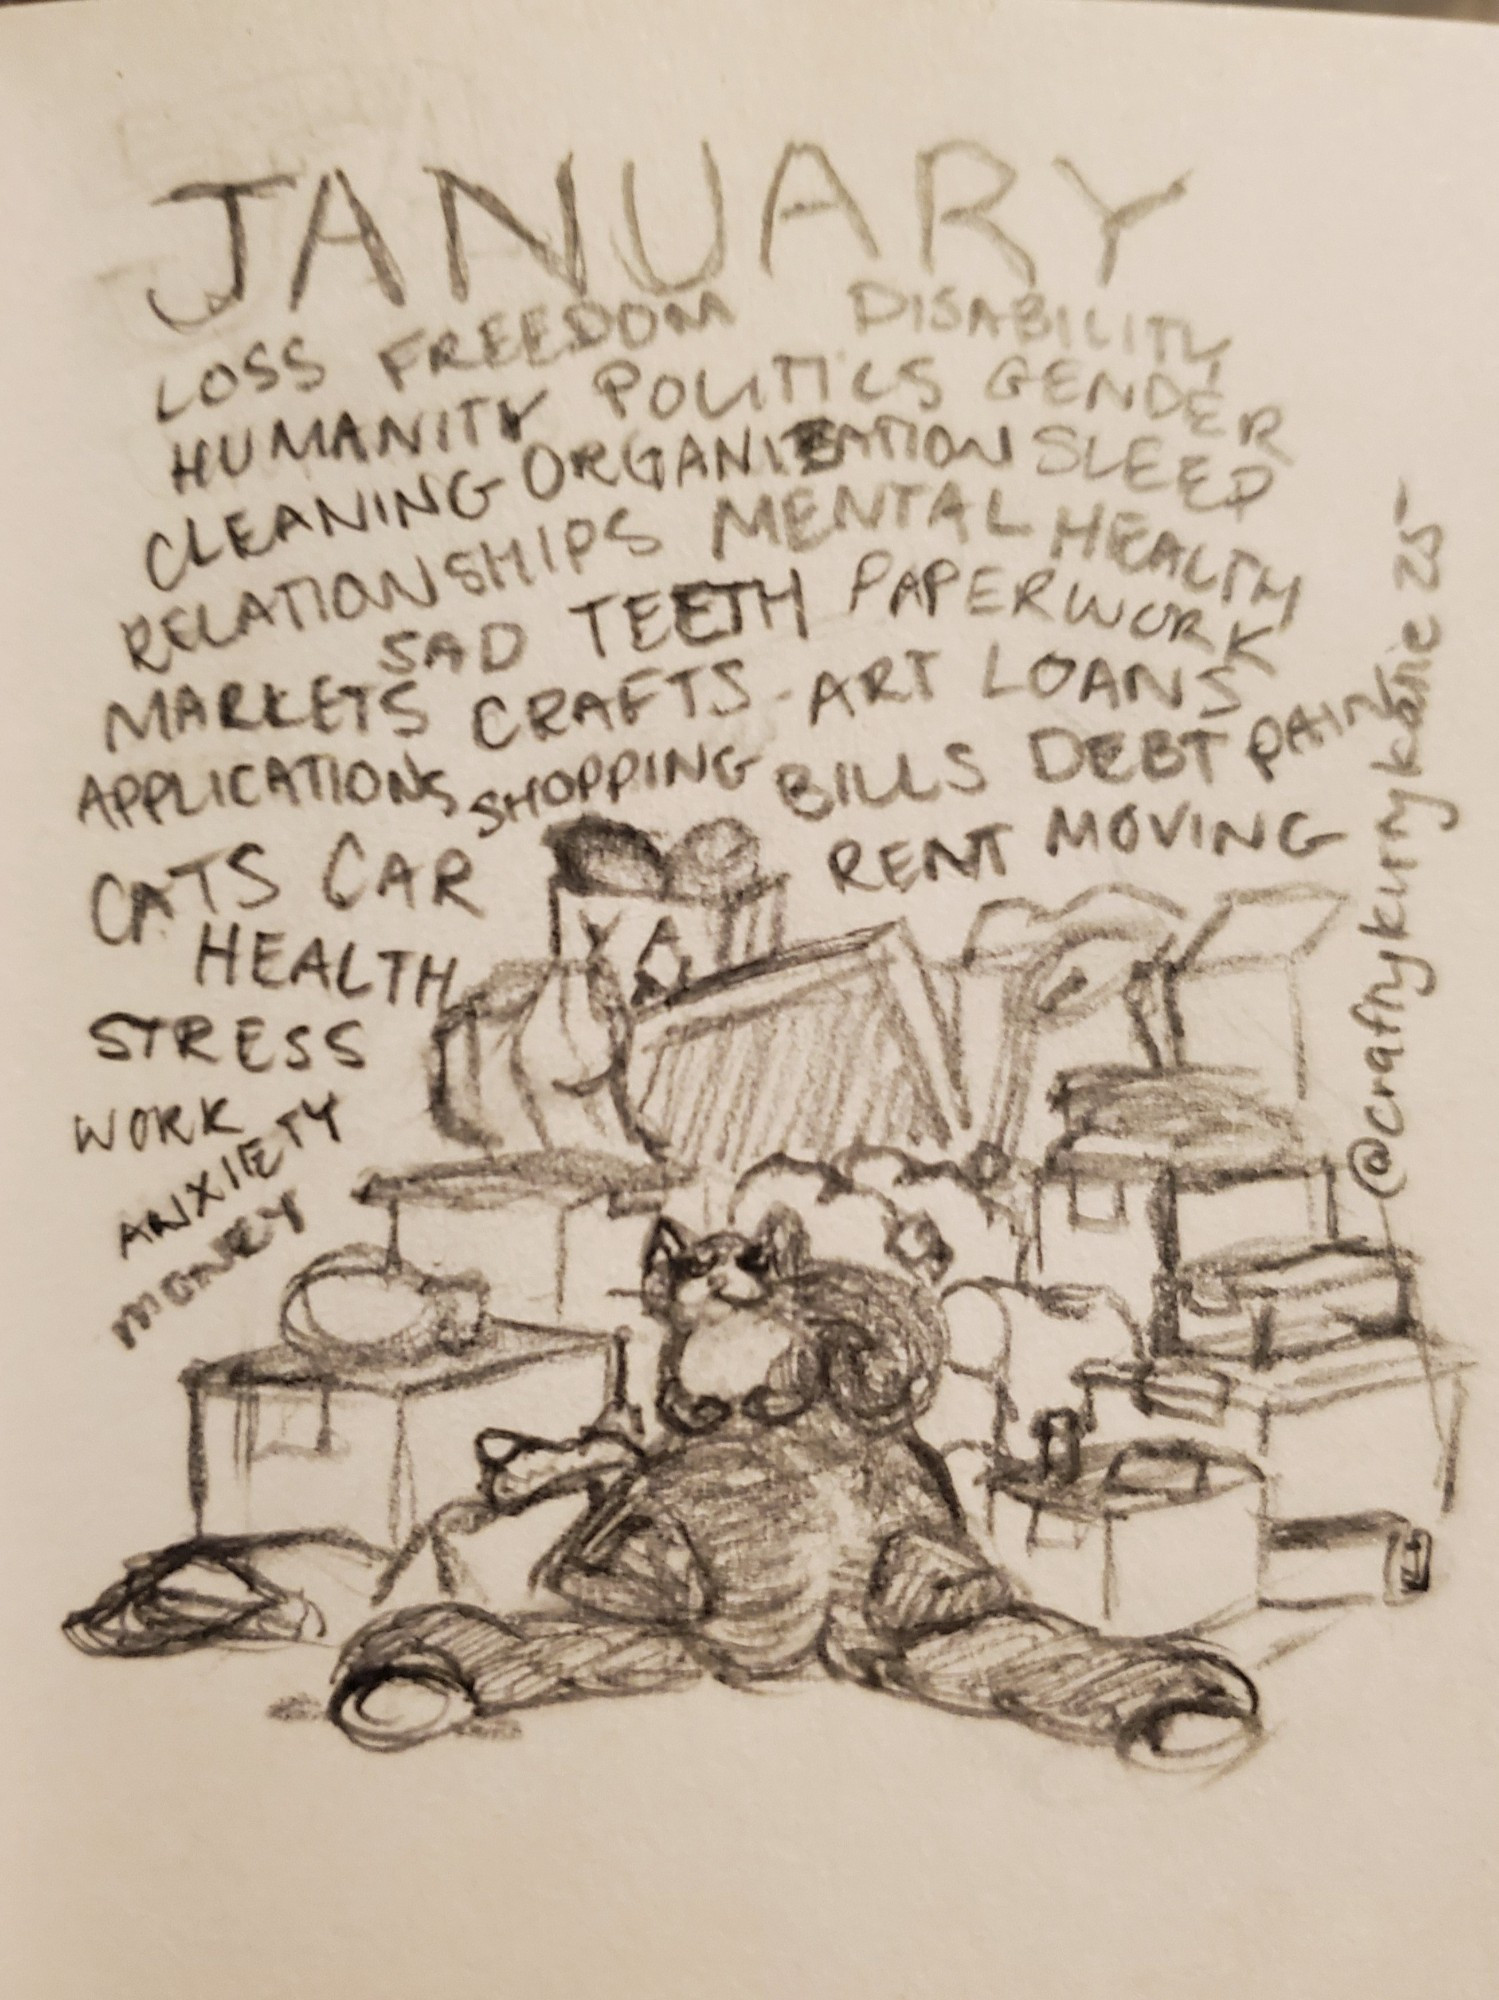 JANUARY
LOSS FREEDOM DISABILITY
HUMANITY POLITICS GENDER
CLEANING ORGANIZATION SLEEP
RELATIONSHIPS MENTAL HEALTH
SAD TEETH PAPERWORK
MARKETS CRAFTS ART LOANS
APPLICATIONS SHOPPING BILLS DEBT PAIN
CATS CAR RENT MOVING
HEALTH
STRESS
WORK
ANXIETY
MONEY
@craftykurrykatie 25